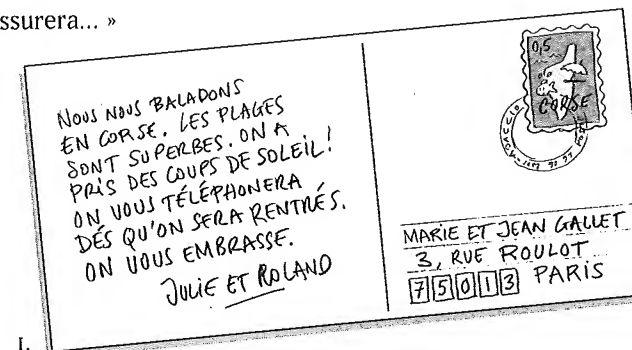 ssurera... »
NOUS NOUS BALADONS
EN CORSE. LES PLAGES
SONT SUPERBES. ON A
PRIS DES COUPS DE SOLEIL!
ON VOUS TÉLÉPHONERA
DÉS QU'ON SERA RENTRÉS.
ON VOUS EMBRASSE.
JULIE ET ROLAND
0,5
CORSE
MARIE ET JEAN GALLET
3, RUE ROULOT
75013 PARIS